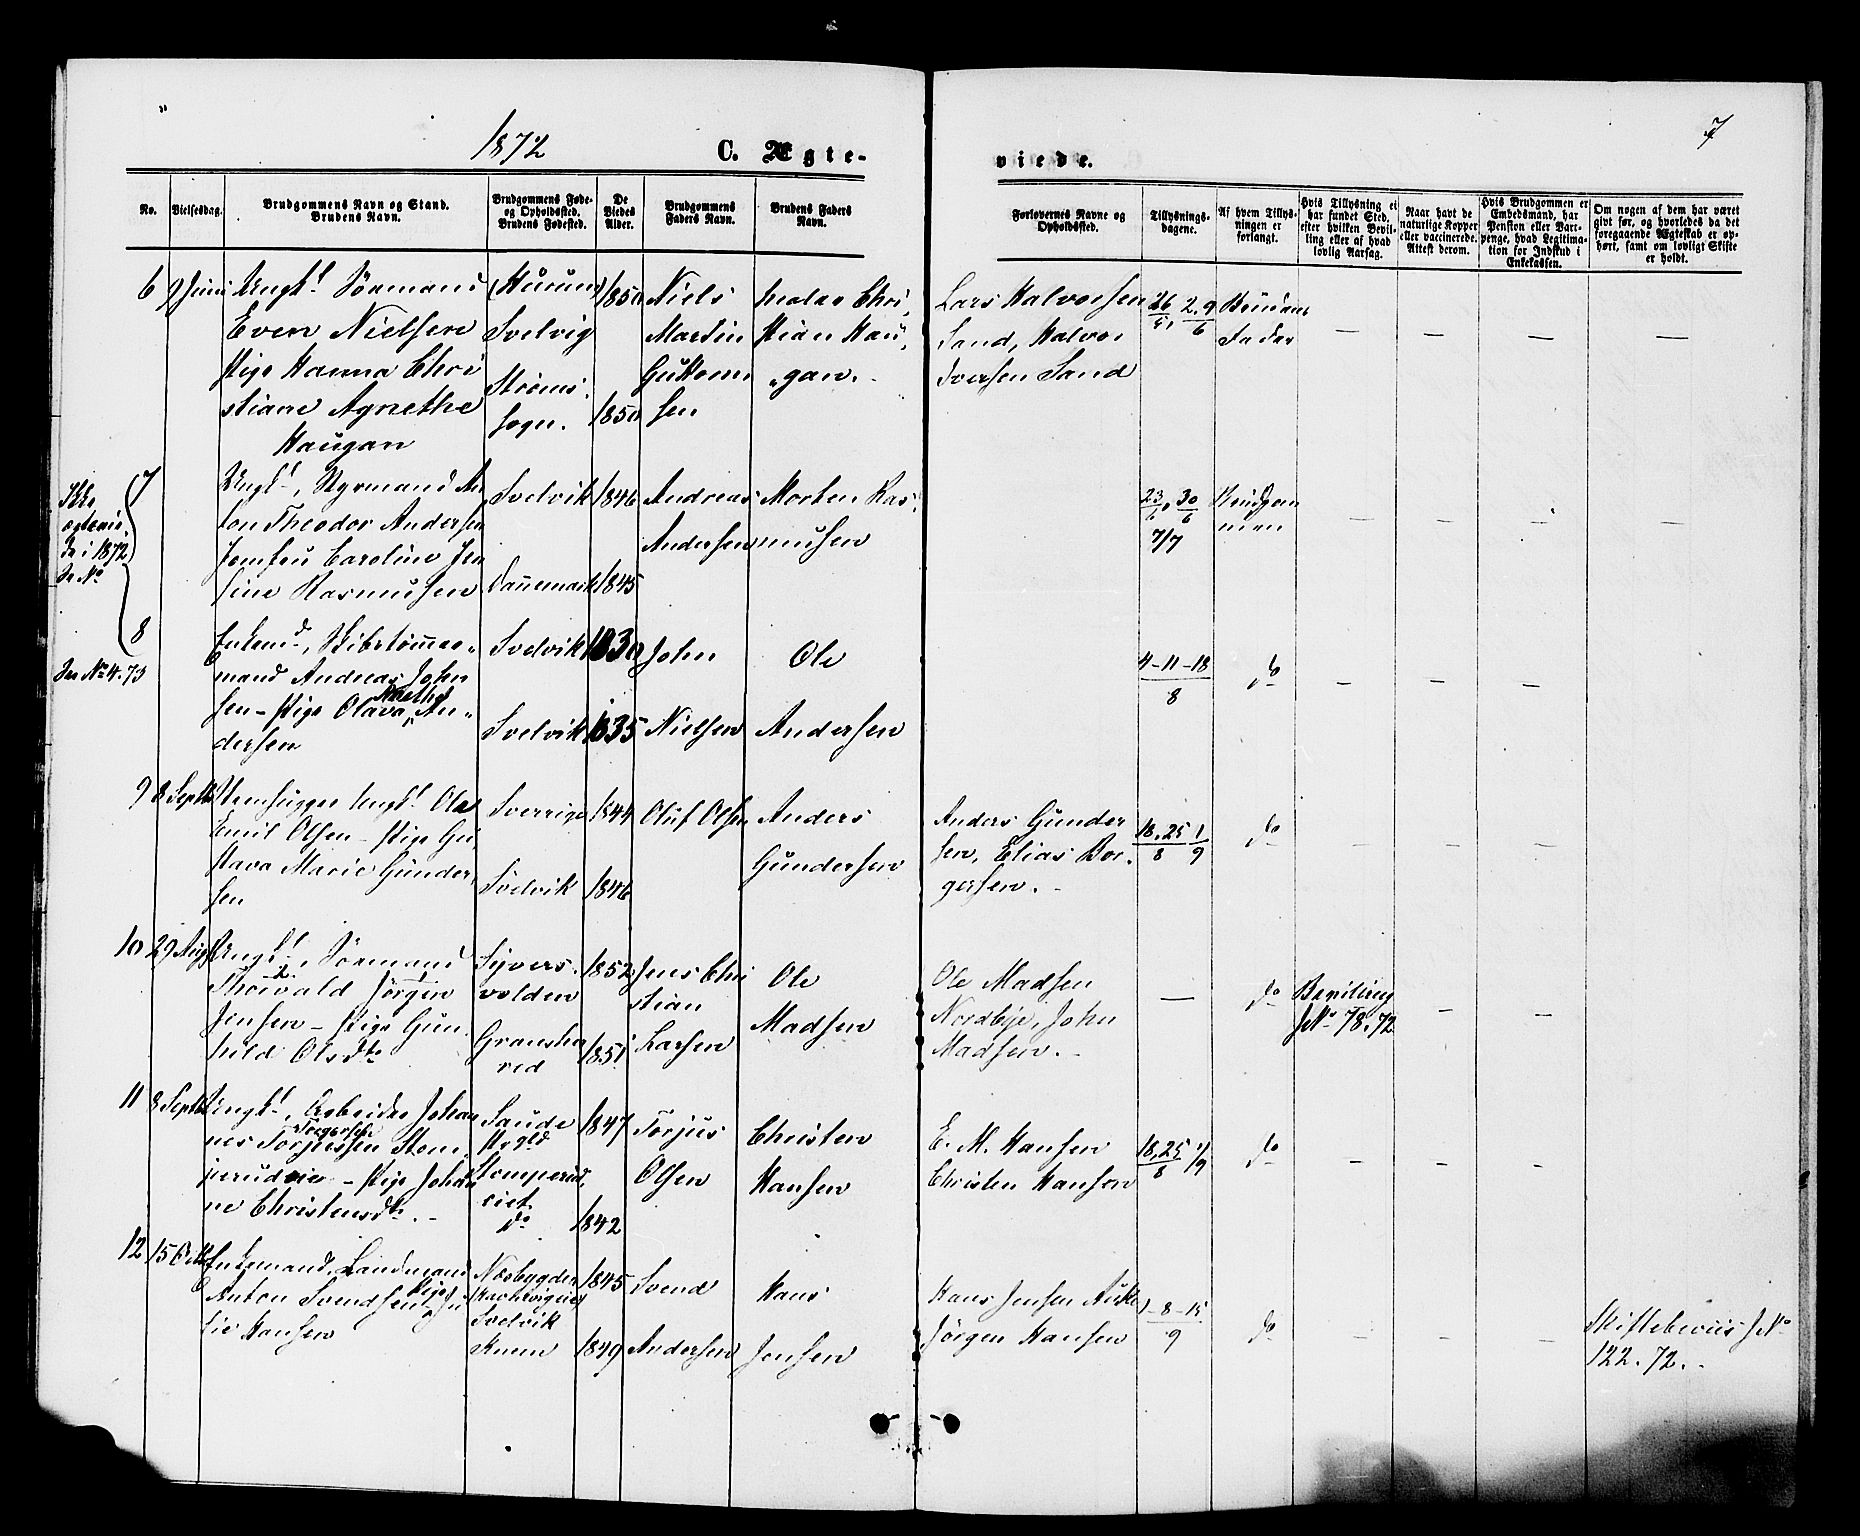 1872
C. Ægteviede.
7
No.
Vielsesdag.
Brudgommens Navn og Stand.
Brudens Navn.
Brudgommens Føde-
og Opholdsted.
Brudens Fødested.
De
Viedes
Alder.
Brudgommens
Faders Navn.
Brudens Faders
Navn.
Forlovernes Navne og
Opholdsted.
Tillysnings-
dagene.
Af hvem Tillys-
ningen er
forlangt.
Hvis Tillysning ei
har fundet Sted,
efter hvilken Bevil-
ling eller af hvad
lovlig Aarsag.
Naar havt de
naturlige Kopper
eller vaccinerede.
Attest derom.
Hvis Brudgommen er
Embedsmand, har
Pension eller Vart-
penge, hvad Legitima-
tion for Indskud i
Enkekassen.
Om nogen af dem har været
givt før, og hvorledes da det
foregaaende Ægteskab er op-
hørt, samt om lovligt Skifte
er holdt.
6
9 Juni
Ungk. Sømand
Even Nielsen
Pige Hanna Chri
stiane Agnethe
Haugan
Hurum
Svelvig
Strøms-
sogn.
1850
1850
Niels
Martin
Guttorm
sen
Chri-
stian Hau-
gan.
Lars Halvorsen
Sand, Halvor
Iversen Sand
26/5, 2.9/6
Brudens
Fader
— — — —
Ikke
ægtevie
de i 1872
7
Ungk., Styrmand An
ton Theodor Andersen
Jomfru Caroline Jen
sine Rasmussen
Svelvik
Dannemark
1846
1845
Andreas
Andersen
Morten Ras-
musen
23/6, 30/6
7/7
Brudgom
men
— — — —
8
Se No 4. 73
Enkemd, Skibstømmer-
mand Andreas John
sen – Pige Olava Anethe An-
dersen
Svelvik
Svelvik
1830
1835
John
Nielsen
Ole
Andersen
4-11-18
8
do
— — —
9
8 Septb
Stenhugger Ungk. Ole
Emil Olsen – Pige Gu
stava Marie Gunder-
sen
Sverrige
Svelvik
1844
1846
Oluf Olsen
Anders
Gundersen
Anders Gunder
sen, Elias Bor-
gersen.
18.25/8 1/9
do
— — —
10
29 Aug
Ungk., Sømand
Thorvald Jørgen
Jensen – Pige Gun
hild Olsdtr
Syvers-
volden
Gransher
red
1852
1851
Jens Chri
stian
Larsen
Ole
Madsen
Ole Madsen
Nordbye, John
Madsen.
—
do
Bevilling
JNo 78.72
— —
11
8 Septb
Ungk., Arbeider Johan
nes Torjussen Torgersen Stom
perudeie – Pige Johan
ne Christensdtr.
Saude
Prgjld
Stomperud
eiet
do
1847
1842
Torjus
Olsen
Christen
Hansen
E. M. Hansen
Christen Hansen
18.25/8 1/9
do
— — —
12
15 Octb
Enkemand, Landmand
Anton Svendsen – Pige Ju
lie Hansen
Næsbygden
Svelvik
1845
1849
Svend
Andersen
Hans
Jensen
Hans Jensen
Jørgen Hansen
1-8-15
9
do
— — —
Skiftebeviis JNo
122.72.